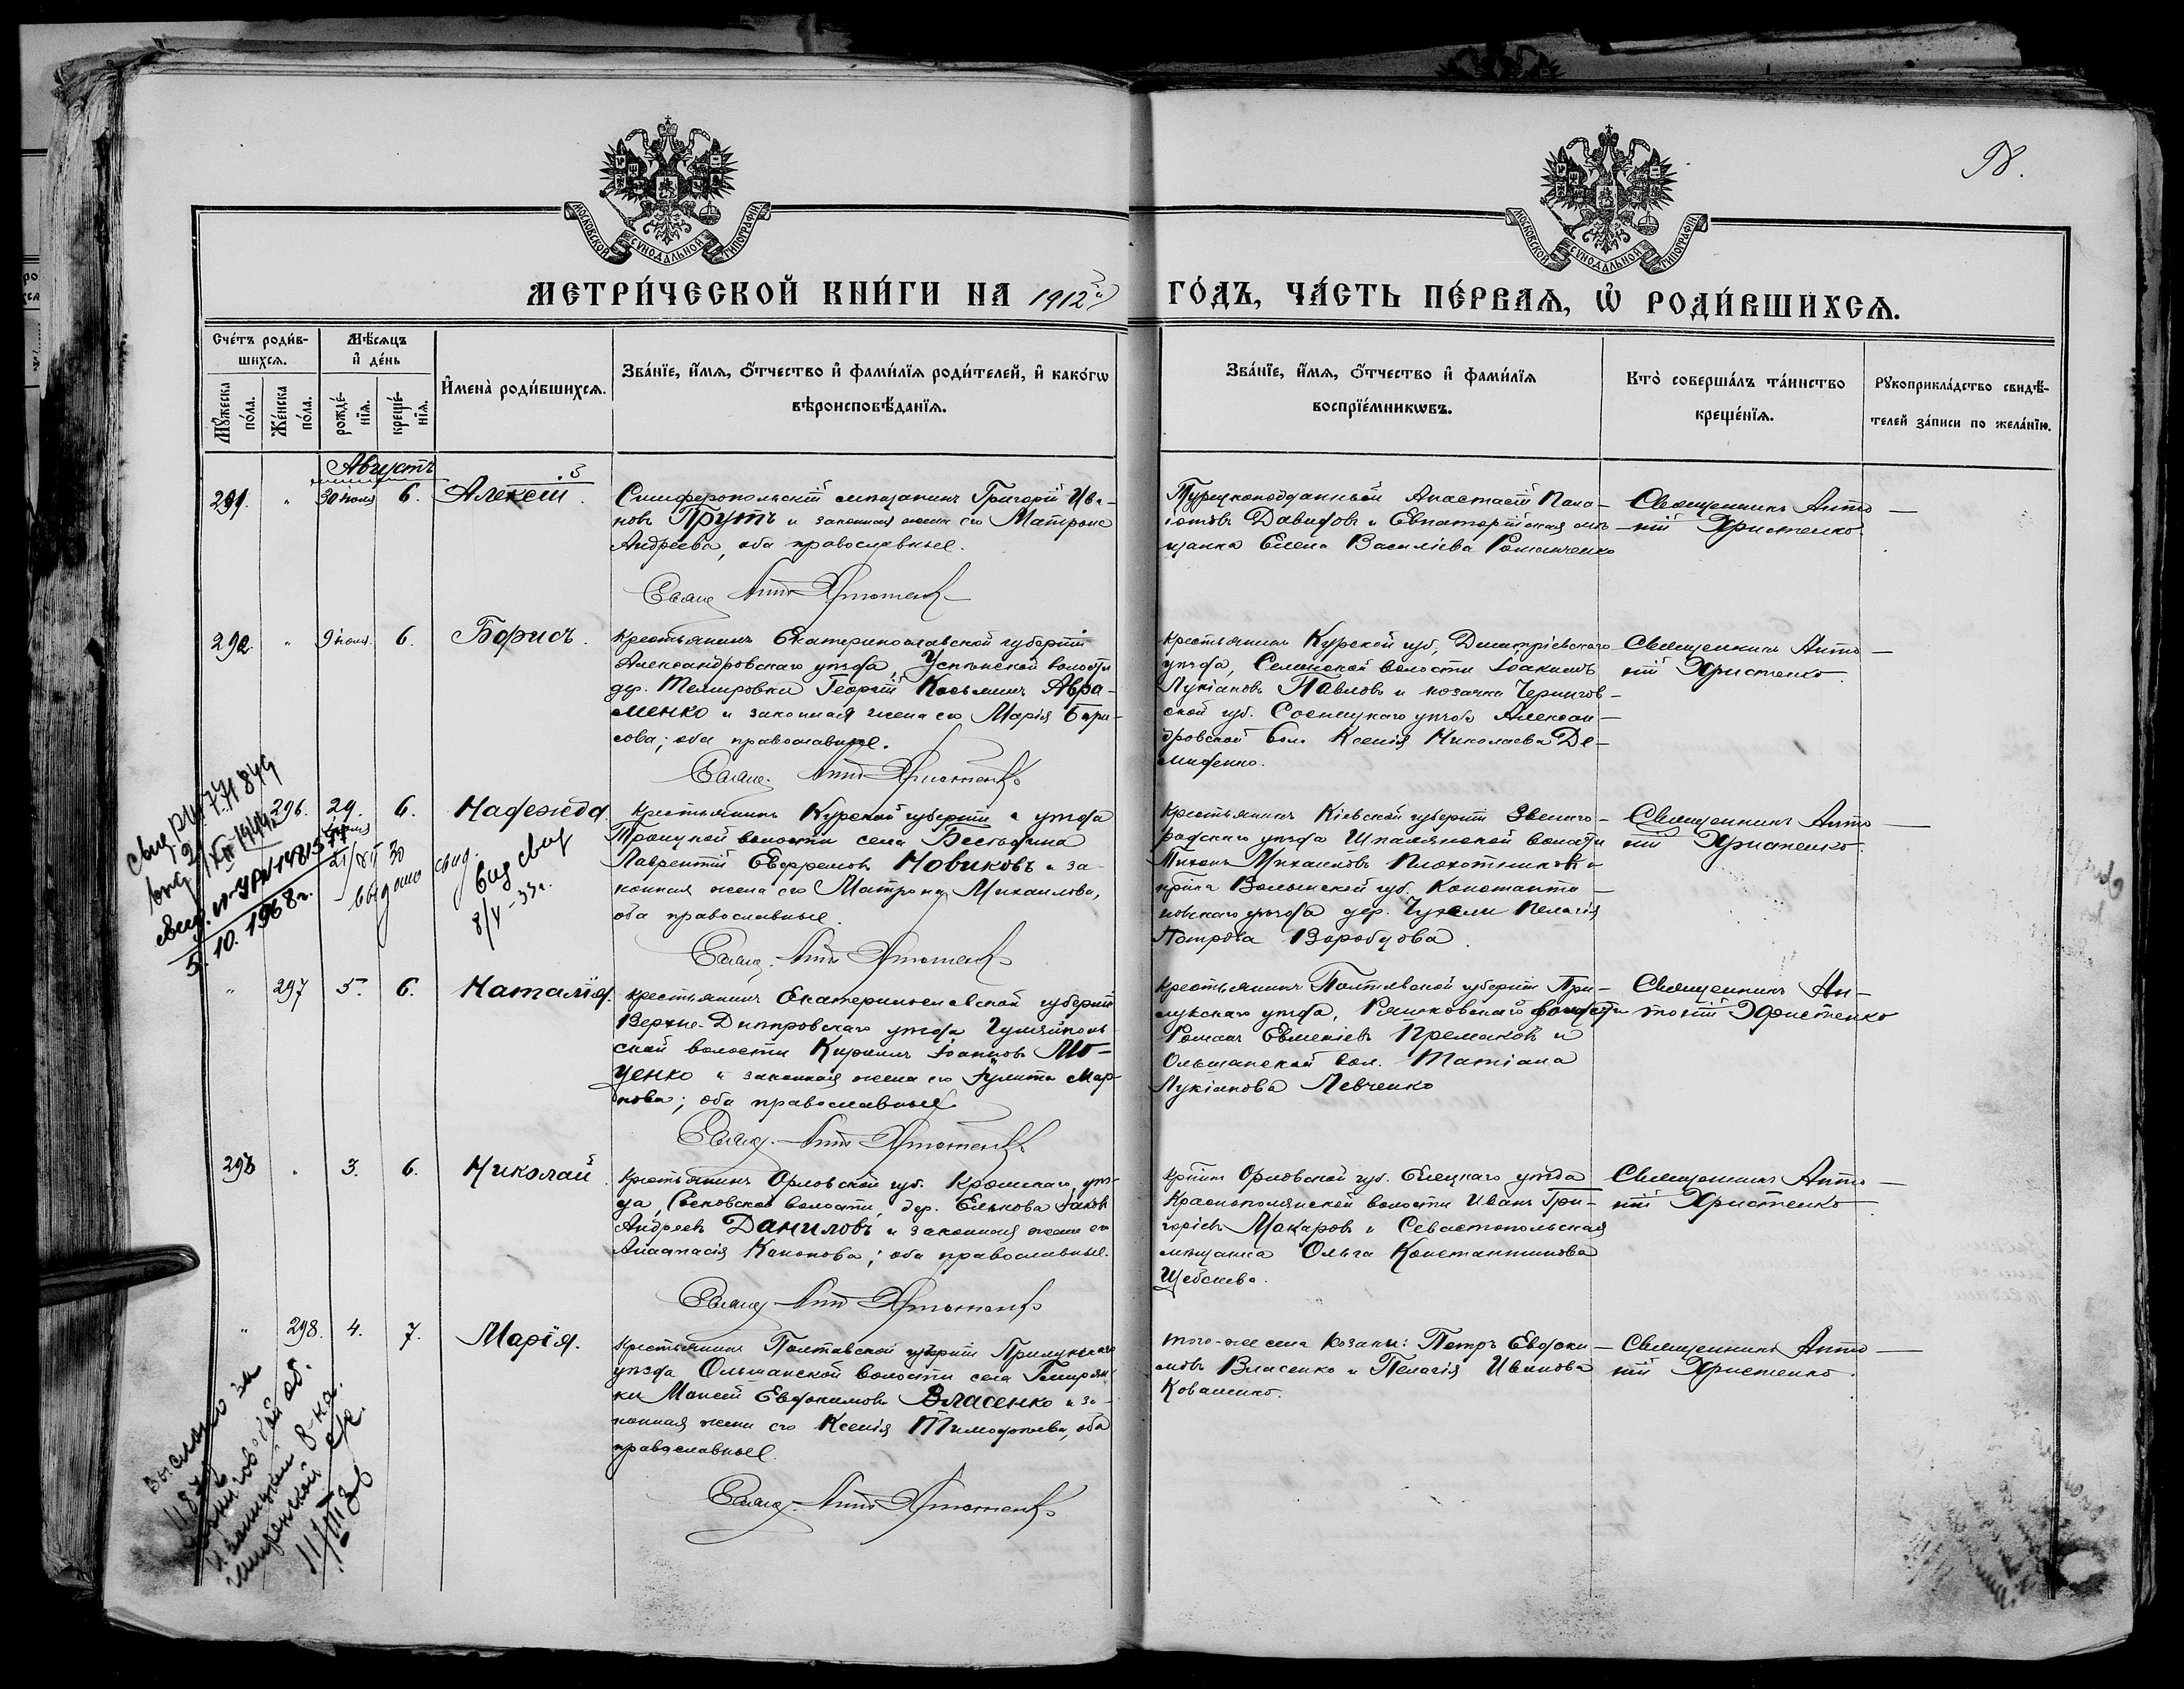 98.
МОСКОВСКОЙ СѴНОДАЛЬНОЙ ТИПОГРАФІИ
МОСКОВСКОЙ СѴНОДАЛЬНОЙ ТИПОГРАФІИ
МЕТРИ́ЧЕСКОЙ КНИ́ГИ НА 1912й ГО́ДЪ, ЧА́СТЬ ПЕ́РВАѦ, Ѡ҆ РОДИ́ВШИХСѦ.
Сче́тъ роди́в-
шихсѧ.
Мꙋ́жеска
по́ла.
Же́нска
по́ла.
Мѣ́сѧцъ
и҆ де́нь
рожде́-
нїѧ.
креще́-
нїѧ.
И҆мена̀ роди́вшихсѧ.
Зва́нїе, и҆́мѧ, ѻ҆́тчество и҆ фами́лїѧ роди́телей, и҆ како́гѡ
вѣроисповѣ́данїѧ.
Зва́нїе, и҆́мѧ, ѻ҆́тчество и҆ фами́лїѧ
воспрїе́мникѡвъ.
Кто̀ соверша́лъ та́инство
креще́нїѧ.
Рꙋкоприкла́дство свидѣ́-
телей за́писи по жела́нїю.
Августъ
291. " 30 іюля 6. Алексій.
Симферопольскій мѣщанинъ Григорій Ива-
новъ Прутъ и законная жена его Матрона
Андреева, оба православные.
Турецкоподданный Анастасій Пана-
іотовъ Давидовъ и Евпаторійская мѣ-
щанка Елена Василіева Романченко
Священникъ Анто-
ній Христенко.
Свящ. Антъ Христенко
292. " 9 іюля. 6. Борисъ.
Крестьянинъ Екатеринославской губерніи
Александровскаго уѣзда, Успенской волости
дер. Темировки Георгій Косьминъ Авра-
менко и законная жена его Марія Бори-
сова; оба православные.
Крестьянинъ Курской губ. Дмитріевскаго
уѣзда, Селинской волости Іоакимъ
Лукіановъ Павловъ и козачка Чернигов-
ской губ. Сосницкаго уѣзда Алексан-
дровской вол. Ксенія Николаева Де-
миденко.
Священникъ Анто-
ній Христенко.
Свящ. Антъ Христенко
296. 29. іюля 6. Надежда.
Крестьянинъ Курской губерніи и уѣзда
Троицкой волости села Бесѣдина
Лаврентій Евфремовъ Новиковъ и за-
конная жена его Матрона Михаилова,
оба православные.
Крестьянинъ Кіевской губерніи Звениго-
родскаго уѣзда Шполянской волости
Тихонъ Михаиловъ Плохотниковъ и
кр-нка Волынской губ. Константи-
новскаго уѣзда дер. Пелагія
Петрова
Священникъ Анто-
ній Христенко.
Свящ. Антъ Христенко
выдано свид.
выд свид
8/V-33г.
5.10.1968г.
" 297 5. 6. Наталія.
Крестьянинъ Екатеринославской губерніи
Верхне-Днѣпровскаго уѣзда,
ской волости Кириллъ Іоанновъ Мо-
ценко и законная жена его Іулитта Мар-
кова; оба православные.
Крестьянинъ Полтавской губерніи При-
лукскаго уѣзда, волости
Романъ Евменіевъ и
Ольшанской вол. Татіана
Лукіанова Левченко
Священникъ Ан-
тоній Христенко
Свящ. Антъ Христенко
293 " 3. 6. Николай.
Крестьянинъ Орловской губ. Кромскаго уѣз-
да, волости, дер. Елькова Іаковъ
Андреевъ Даниловъ и законная жена его
Анастасія Кононова; оба православные.
Кр-нинъ Орловской губ. Елецкаго уѣзда
Краснополянской волости Иванъ Гри-
горіевъ Макаровъ и Севастопольская
мѣщанка Ольга Константинова
Священникъ Анто-
ній Христенко.
Свящ. Антъ Христенко
" 298. 4. 7. Марія.
Крестьянинъ Полтавской губерніи Прилукскаго
уѣзда Ольшанской волости села
ки Моисей Евдокимовъ Власенко и за-
конная жена его Ксенія Тимофеева, оба
православные.
того-же села козаки: Петръ Евдоки-
мовъ Власенко и Пелагія Иванова
Коваленко.
Священникъ Анто-
ній Христенко.
Свящ. Антъ Христенко
Выслано за